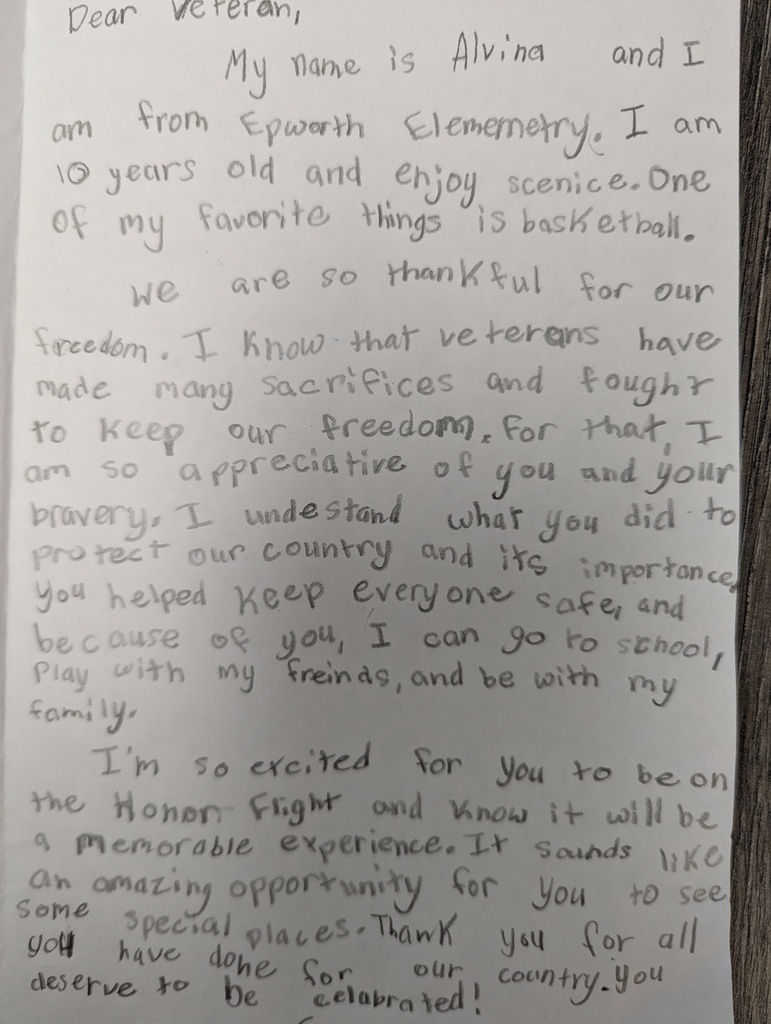 Dear Veteran,
My name is Alvina and I
am from Epworth Elememetry. I am
10 years old and enjoy scenice. One
of my favorite things is basketball.
We are so thankful for our
freedom. I know that veterans have
made many sacrifices and fought
to keep our freedom. For that, I
am so appreciative of you and your
bravery. I undestand what you did to
protect our country and its importance.
You helped keep everyone safe, and
because of you, I can go to school,
Play with my freinds, and be with my
family.
I'm so excited for you to be on
the Honor Flight and know it will be
a memorable experience. It sounds like
an amazing opportunity for you to see
some special places. Thank you for all
you have done for our country. You
deserve to be celabrated!